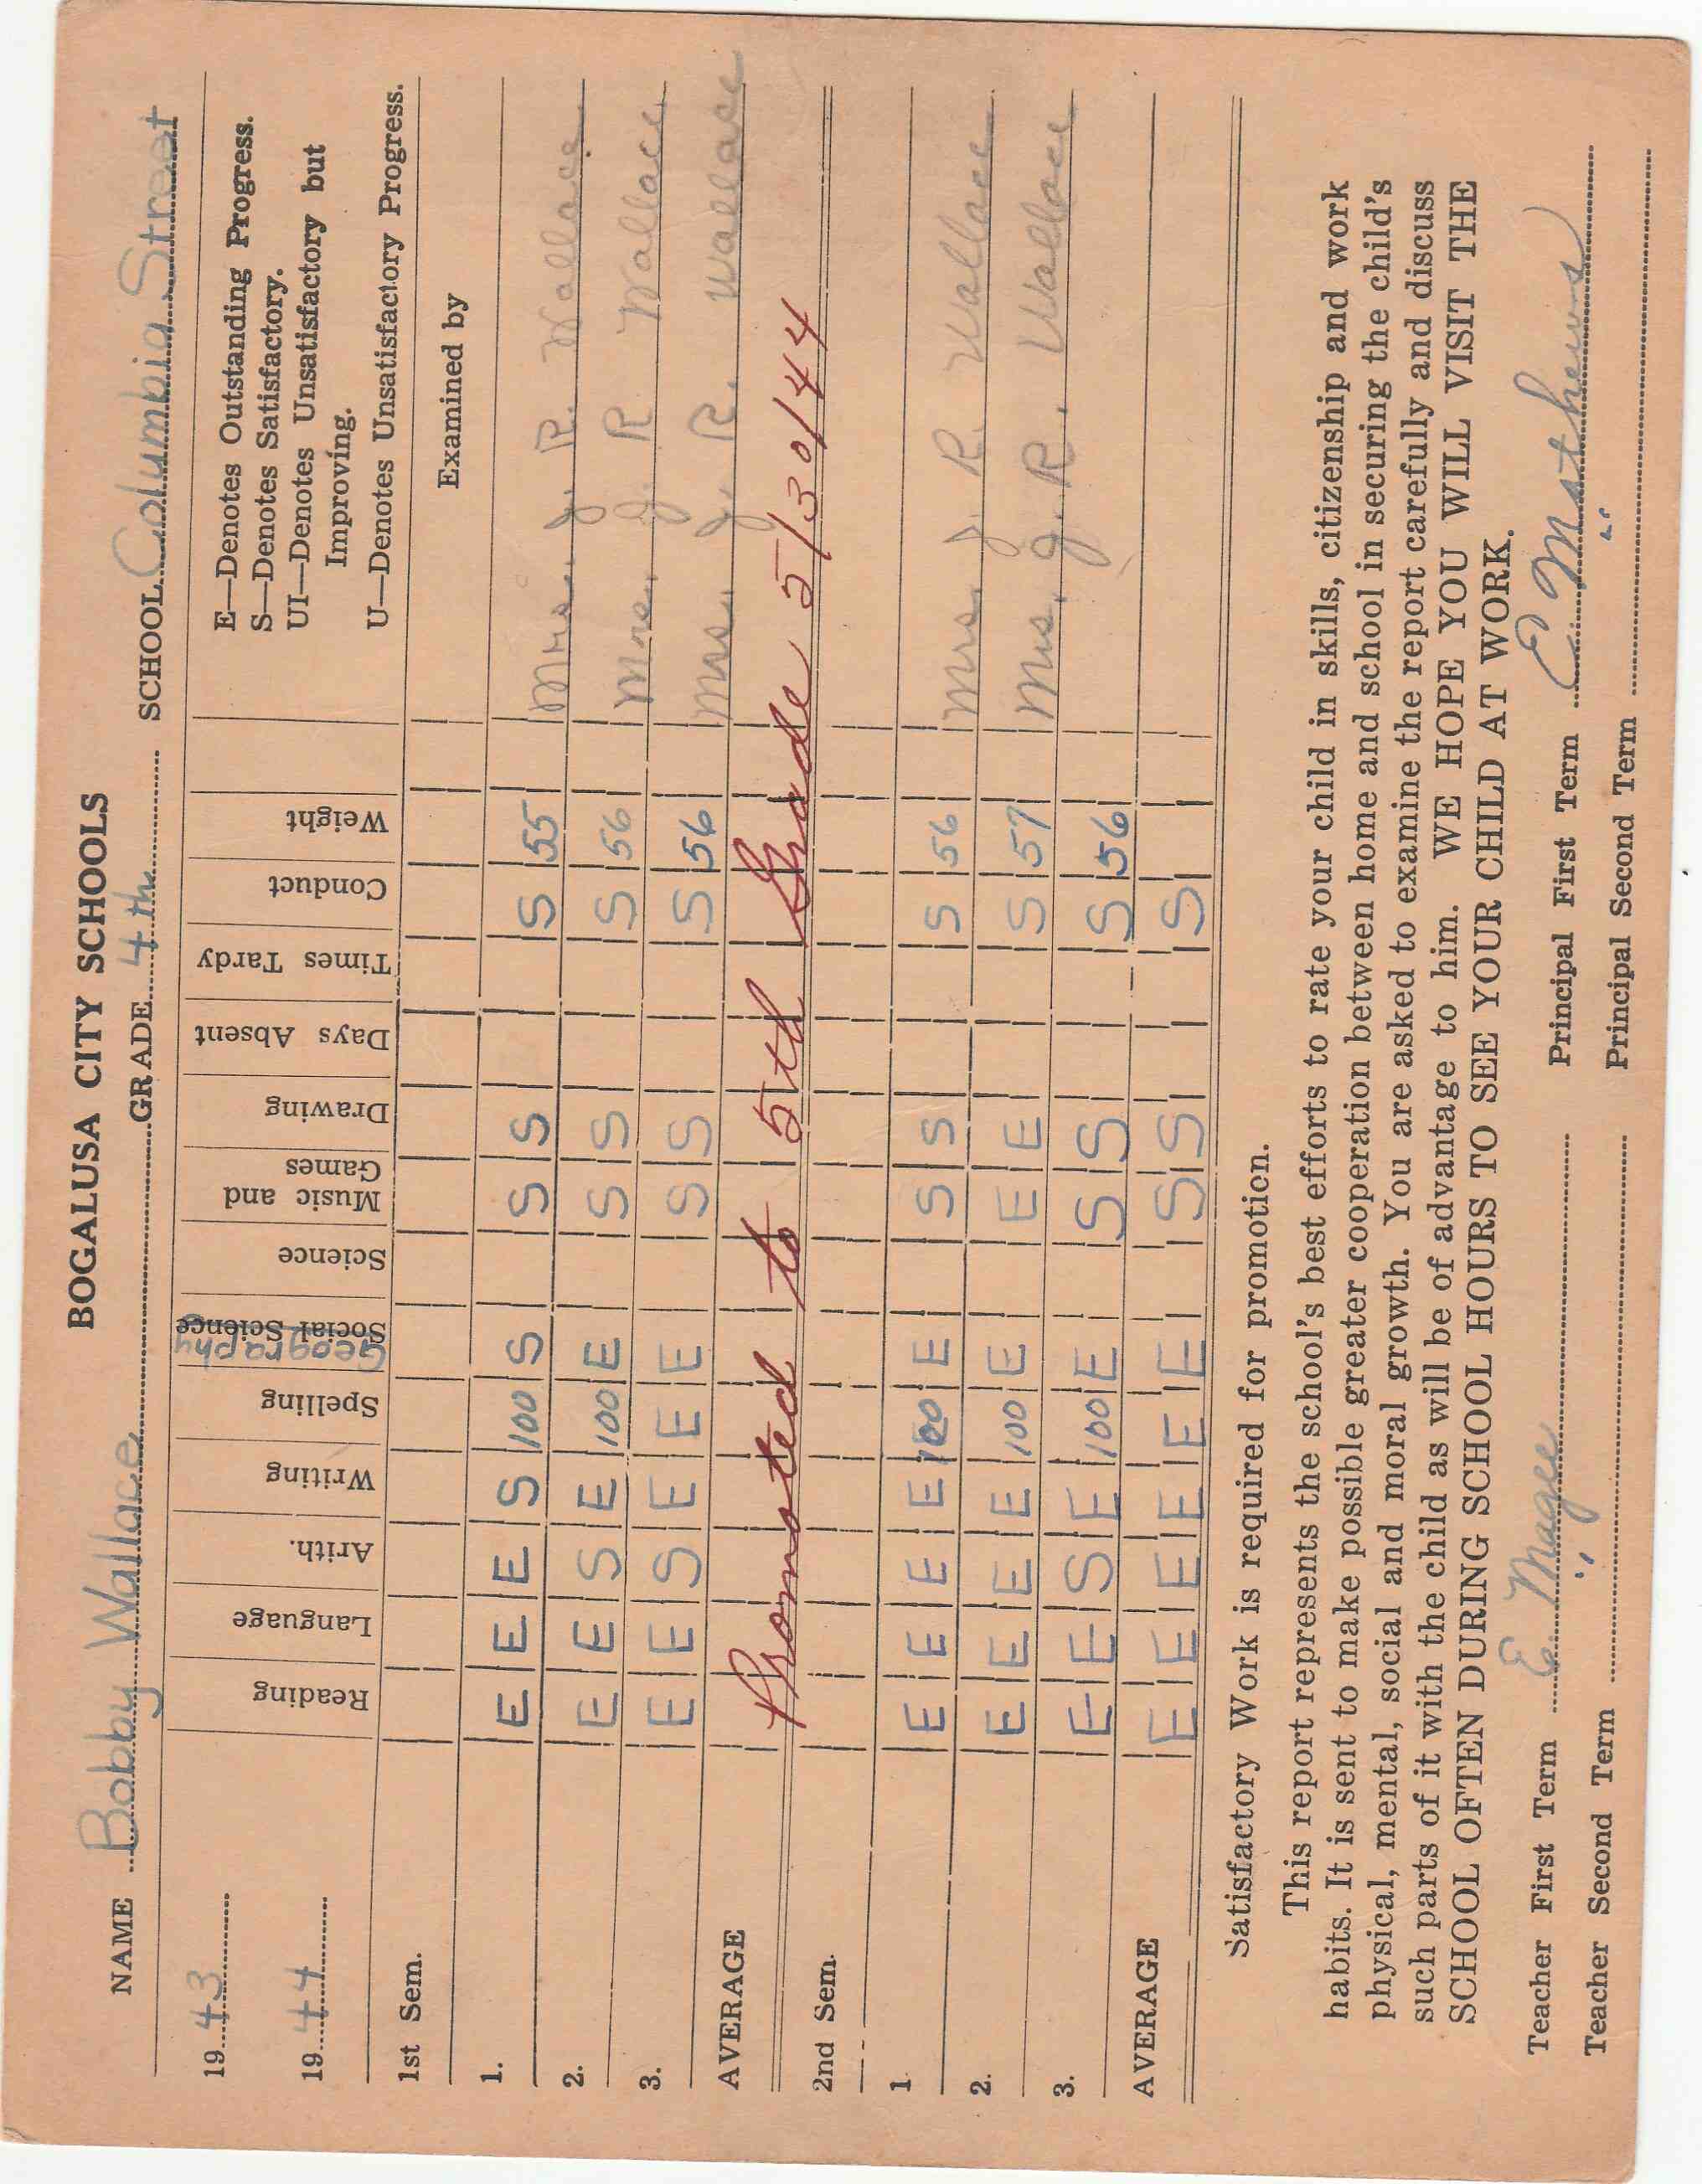 BOGALUSA CITY SCHOOLS
NAME Bobby Wallace GRADE 4th SCHOOL Columbia Street
19 43
19 44
Reading
Language
Arith.
Writing
Spelling
Social Science
Geography
Science
Music and Games
Drawing
Days Absent
Times Tardy
Conduct
Weight
E—Denotes Outstanding Progress.
S—Denotes Satisfactory.
UI—Denotes Unsatisfactory but
Improving.
U—Denotes Unsatisfactory Progress.
1st Sem. Examined by
1. E E E S 100 S S S S 55 Mrs. J. R. Wallace
2. E E S E 100 E S S S 56 Mrs. J. R Wallace
3. E E S E E E S S S 56 Mrs. J. R. Wallace
AVERAGE
Promoted to 5th Grade 5/30/44
2nd Sem.
1 E E E E 100 E S S S 56 Mrs. J. R. Wallace
2. E E E E 100 E E E S 57 Mrs. J. R. Wallace
3. E E S E 100 E S S S 56
AVERAGE E E E E E E S S S
Satisfactory Work is required for promotion.
This report represents the school's best efforts to rate your child in skills, citizenship and work
habits. It is sent to make possible greater cooperation between home and school in securing the child's
physical, mental, social and moral growth. You are asked to examine the report carefully and discuss
such parts of it with the child as will be of advantage to him. WE HOPE YOU WILL VISIT THE
SCHOOL OFTEN DURING SCHOOL HOURS TO SEE YOUR CHILD AT WORK.
Teacher First Term E. Magee Principal First Term E Mathews
Teacher Second Term " Principal Second Term "